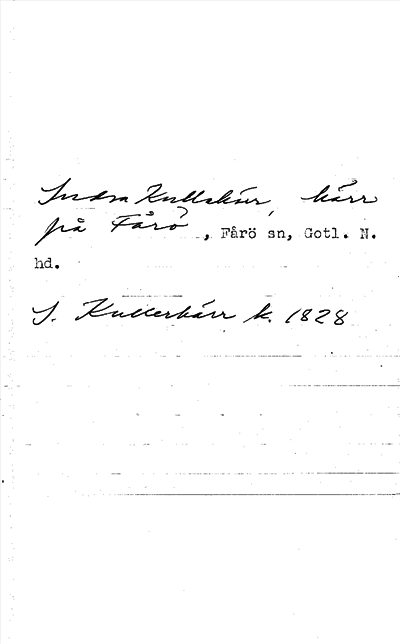 Södra Kullskär, kärr
på Fårö, Fårö sn, Gotl. N.
hd.
S. Kullerkärr k. 1828